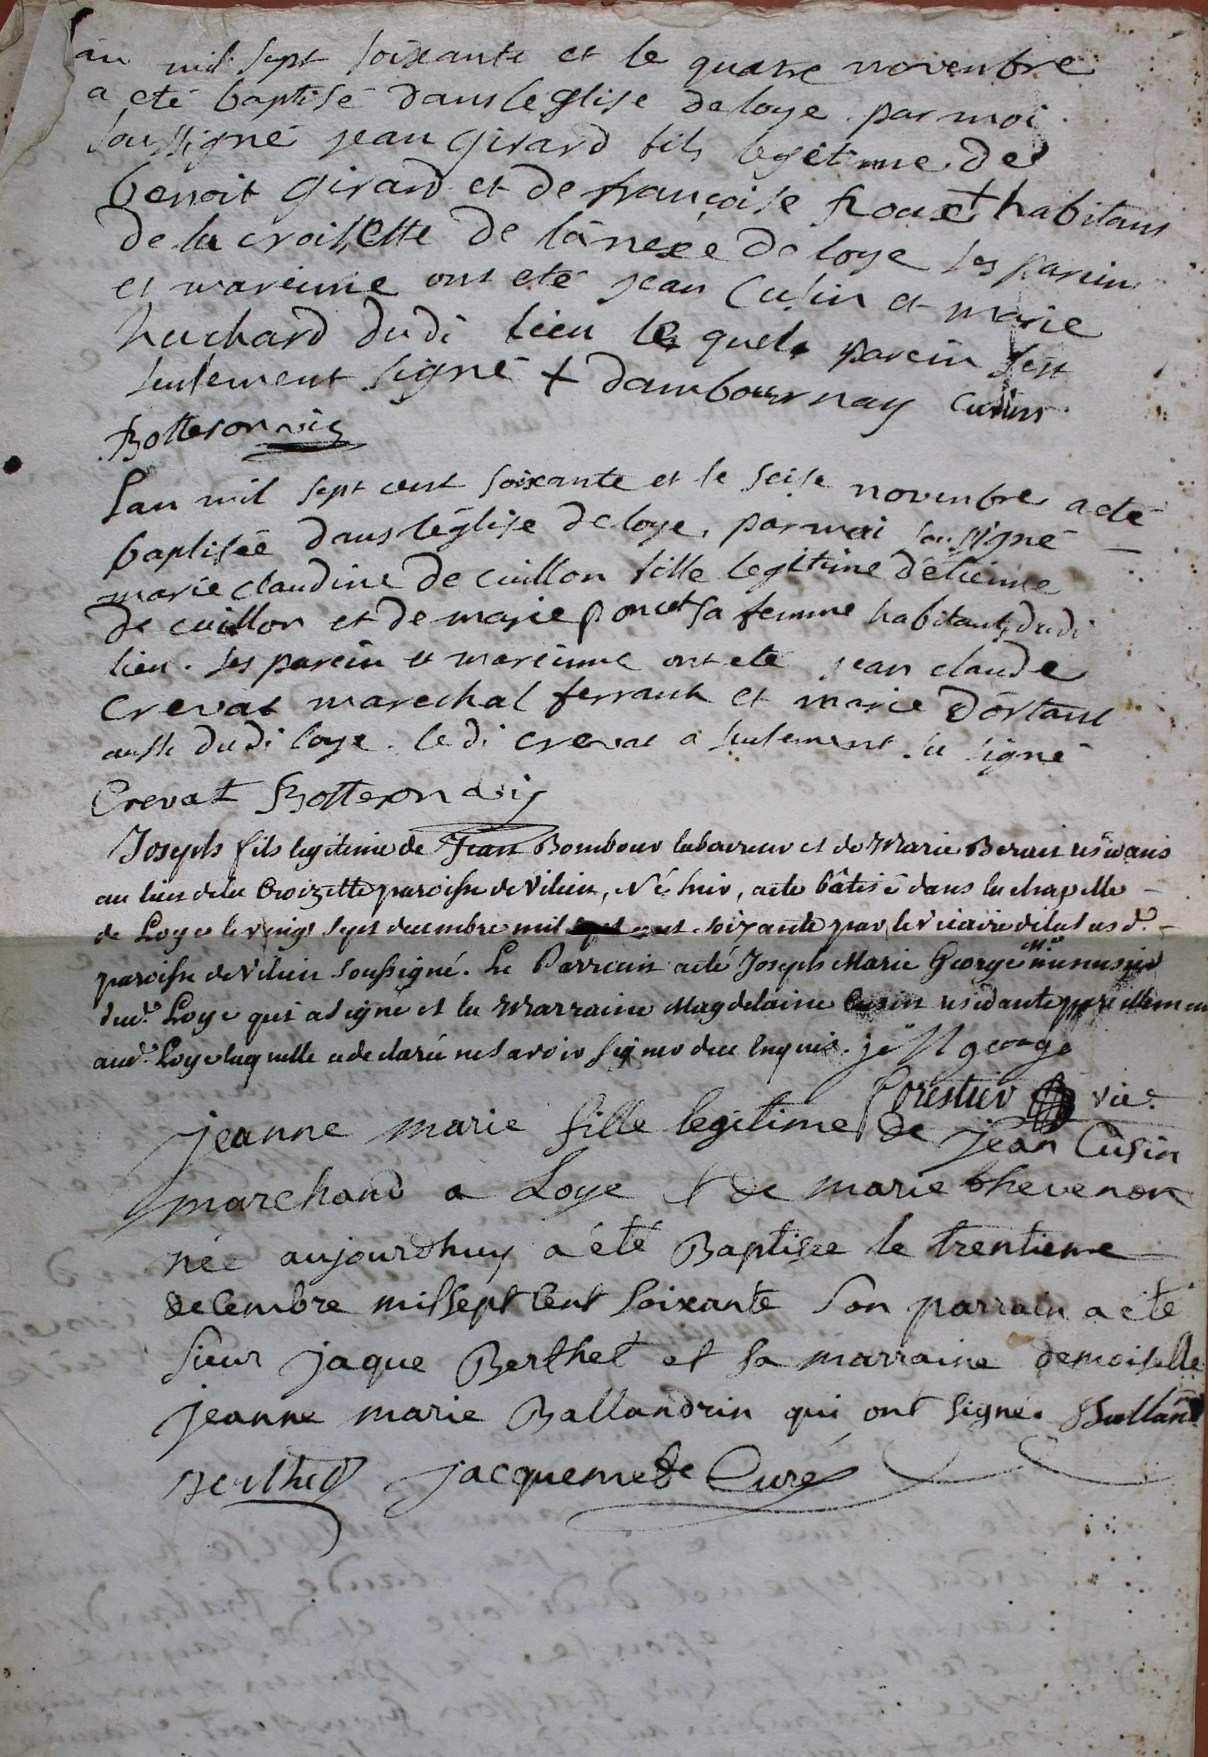 an mil sept soixante et le quatre novembre
a eté baptisé dans leglise de loye par moi
soussigné jean girard fils legitime de
benoit girard et de françoise roux + habitans
de la croisette de lânexe de loye ses parein
et mareinne ont eté jean Cusin et marie
huchard dudi lieu le quel parein s'est
seulement signé + dambournay Cusin
Botteron vic
Lan mil sept cent soixante et le seise novembre a eté
baptisée dans léglise de loye, par moi soussigné
marie claudine de cuillon fille legitime détienne
de cuillon et de marie poncet sa femme habitants dudi
lieu. ses parein et mareinne ont eté jean claude
Crevat marechal ferrant et marie Dortant
aussi dudi loye. ledi crevat a seulement su signé
Crevat Botteron vic
Joseph fils legitime de Jean Bombour laboureur et de Marie residans
au lieu de la Croizette paroisse de Vilieu, Né hier, a eté bâtisé dans la chapelle
de Loye le vingt sept decembre mil sept cent soixante par le vicaire de
paroisse de Vilieu soussigné. Le Parrain a eté Joseph Marie George
dud. Loye qui a signé et la Marraine Magdelaine Cusin residante pareillement
aud. Loye laquelle a declaré ne savoir signer de ce enquise. george
forestier vic.
jeanne marie fille legitime de jean Cusin
marchand a Loye & de marie thevenon
née aujourdhuy a été Baptisée le trentieme
decembre mil sept cent soixante son parrain a été
sieur jaque Berthet et sa marraine demoiselle
jeanne marie Ballandrin qui ont signé. Balland
Berthet jacquemet Curé